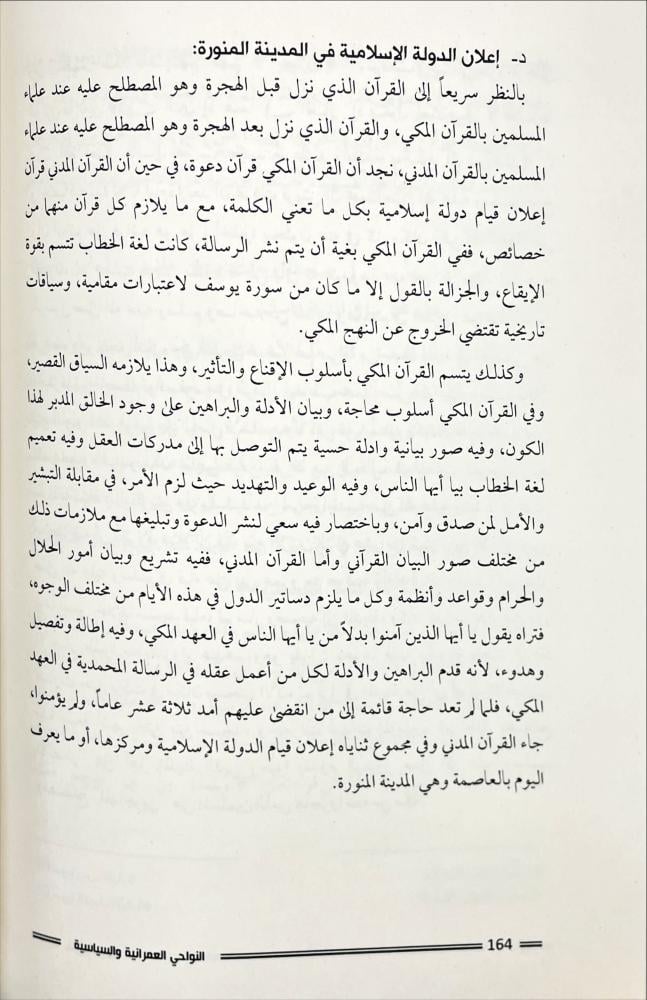 د- إعلان الدولة الإسلامية في المدينة المنورة:
بالنظر سريعاً إلى القرآن الذي نزل قبل الهجرة وهو المصطلح عليه عند علماء
المسلمين بالقرآن المكي، والقرآن الذي نزل بعد الهجرة وهو المصطلح عليه عند علماء
المسلمين بالقرآن المدني، نجد أن القرآن المكي قرآن دعوة، في حين أن القرآن المدني قرآن
إعلان قيام دولة إسلامية بكل ما تعني الكلمة، مع ما يلازم كل قرآن منهما من
خصائص، ففي القرآن المكي بغية أن يتم نشر الرسالة، كانت لغة الخطاب تتسم بقوة
الإيقاع، والجزالة بالقول إلا ما كان من سورة يوسف لاعتبارات مقامية، وسياقات
تاريخية تقتضي الخروج عن النهج المكي.
وكذلك يتسم القرآن المكي بأسلوب الإقناع والتأثير، وهذا يلازمه السياق القصير،
وفي القرآن المكي أسلوب محاجة، وبيان الأدلة والبراهين على وجود الخالق المدبر لهذا
الكون، وفيه صور بيانية وادلة حسية يتم التوصل بها إلى مدركات العقل وفيه تعميم
لغة الخطاب بيا أيها الناس، وفيه الوعيد والتهديد حيث لزم الأمر، في مقابلة التبشير
والأمل لمن صدق وآمن، وباختصار فيه سعي لنشر الدعوة وتبليغها مع ملازمات ذلك
من مختلف صور البيان القرآني وأما القرآن المدني، ففيه تشريع وبيان أمور الحلال
والحرام وقواعد وأنظمة وكل ما يلزم دساتير الدول في هذه الأيام من مختلف الوجوه،
فتراه يقول يا أيها الذين آمنوا بدلاً من يا أيها الناس في العهد المكي، وفيه إطالة وتفصيل
وهدوء، لأنه قدم البراهين والأدلة لكل من أعمل عقله في الرسالة المحمدية في العهد
المكي، فلما لم تعد حاجة قائمة إلى من انقضى عليهم أمد ثلاثة عشر عاماً، ولم يؤمنوا،
جاء القرآن المدني وفي مجموع ثناياه إعلان قيام الدولة الإسلامية ومركزها، أو ما يعرف
اليوم بالعاصمة وهي المدينة المنورة.
164 النواحي العمرانية والسياسية